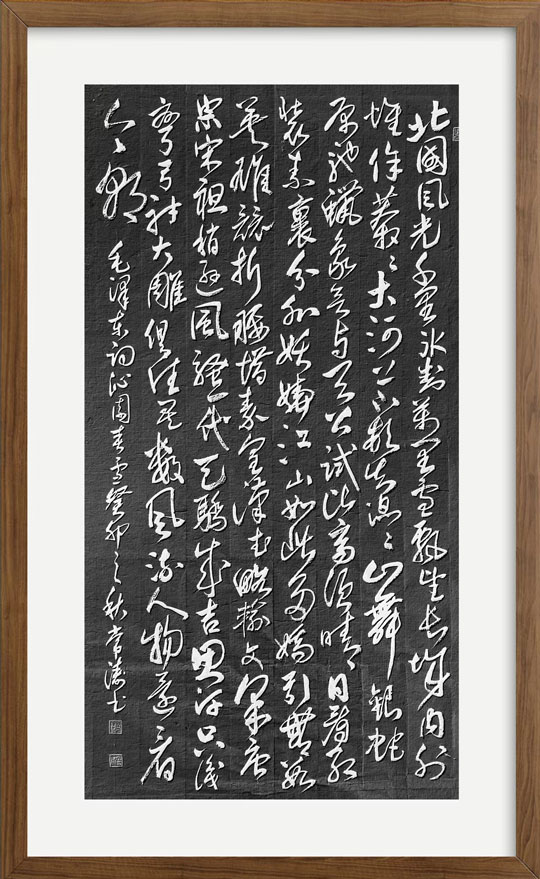 北國風光千里冰封萬里雪飄望長城內外
惟餘莽莽大河上下頓失滔滔山舞銀蛇
原馳蠟象欲與天公試比高須晴日看紅
裝素裹分外妖嬈江山如此多嬌引無數
英雄競折腰惜秦皇漢武略輸文采唐
宗宋祖稍遜風騷一代天驕成吉思汗只識
彎弓射大雕俱往矣數風流人物還看
今朝
毛澤東詞沁園春雪癸卯之秋常書